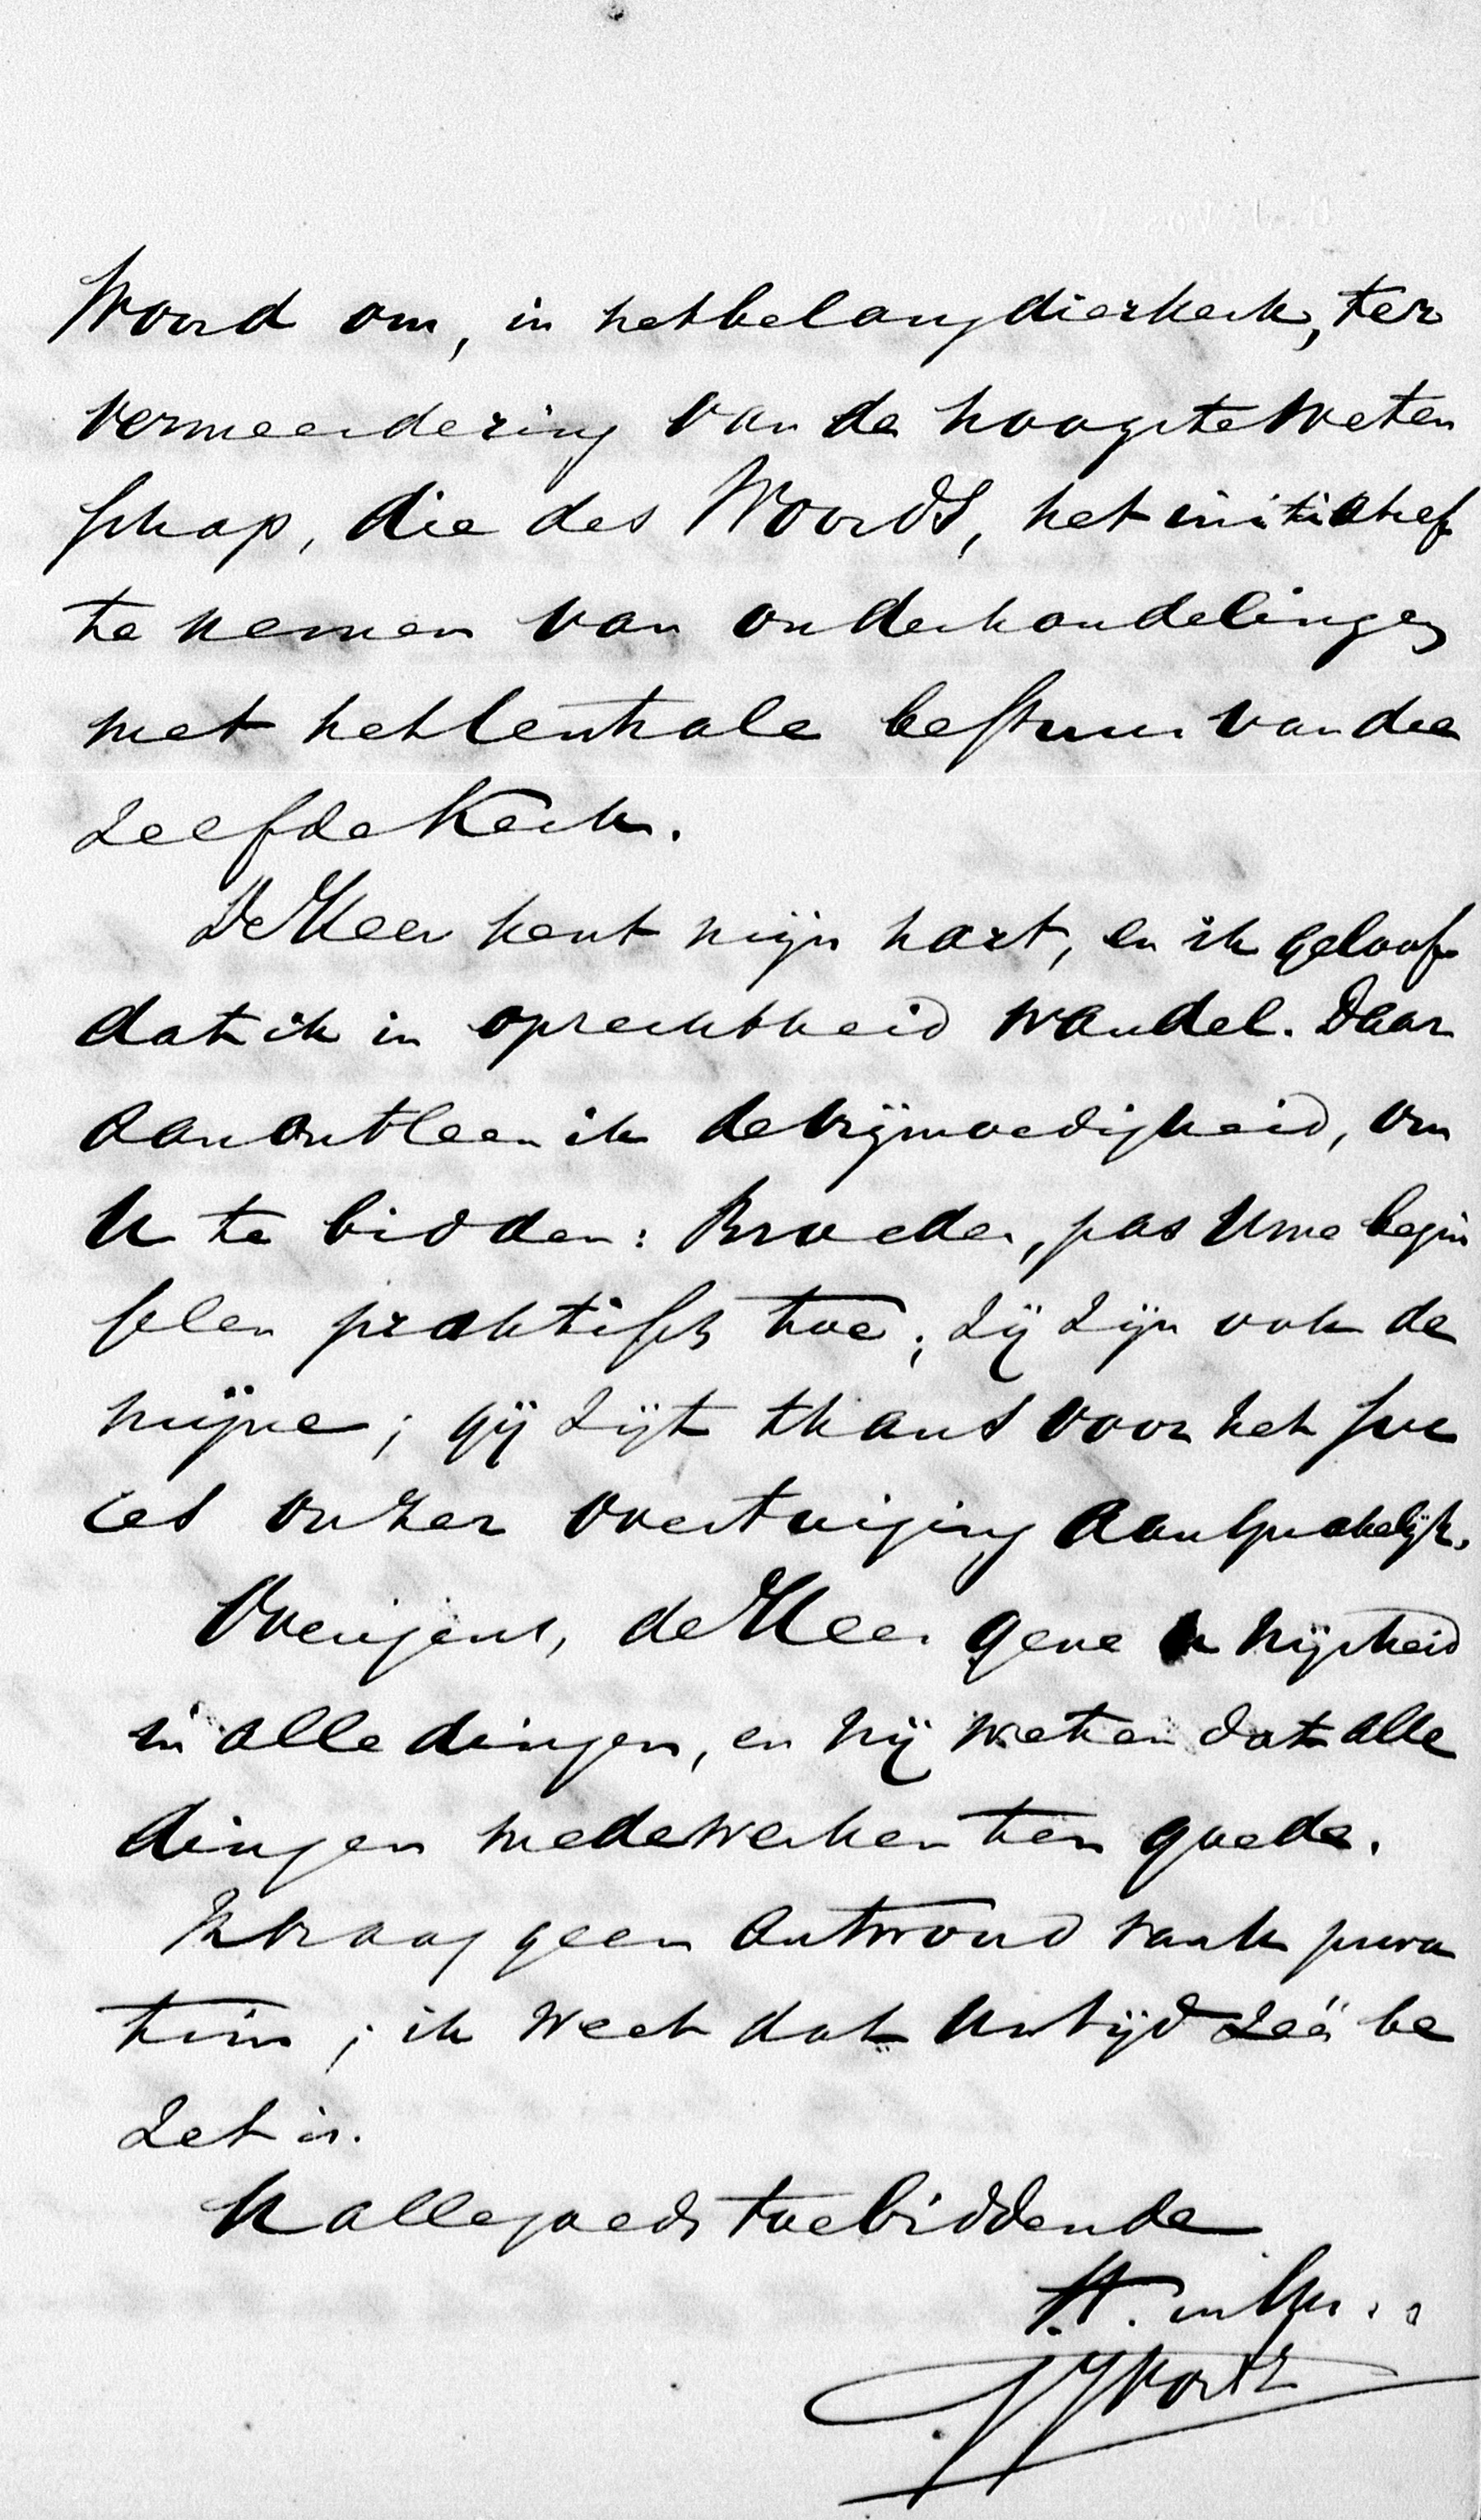 Woord om, in het belang dier kerk, ter
vermeerdering van de hoogste weten
schap, die des Woords, het initiatief
te nemen van onderhandelingen
met het Centrale bestuur van die
zelfde Kerk.
De Heer kent mijn hart, en ik geloof
dat ik in oprechtheid wandel. Daar
aan ontleen ik de vrijmoedigheid, om
U te bidden: Broeder, pas Uwe begin
selen praktisch toe; zij zijn ook de
mijne; gij zijt thans voor het suc
ces onzer overtuiging aansprakelijk.
Overigens, de Heer geve U wijsheid
in alle dingen, en wij weten dat alle
dingen medewerken ten goede.
Ik vraag geen antwoord vaak priva
tim; ik weet dat Uw tijd zéér be
zet is.
U alle goeds toebiddende
t.t. in